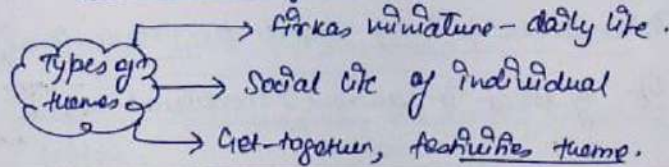 Types of themes
→ firkas miniature - daily life.
→ Social life of individual
→ Get-together, festivities theme.